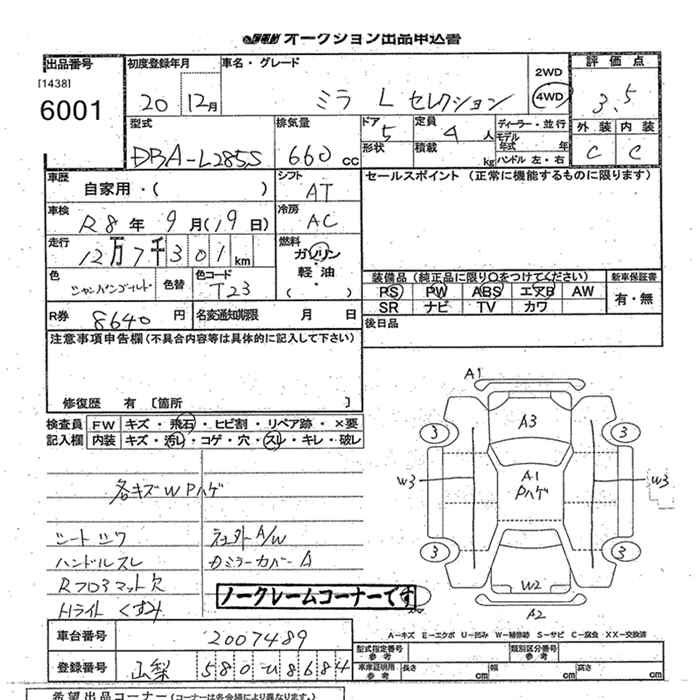 オークション出品申込書
出品番号 初度登録年月 車名・グレード 2WD 評価点
[1438] 6001 20 12月 ミラ L セレクション 4WD 3.5
型式 排気量 ドア 5 定員 4 人 ディーラー・並行 外装 内装
DBA-L285S 660 cc 形状 積載 kg モデル年式 年 C C
ハンドル 左・右
車歴 自家用・( ) シフト AT セールスポイント (正常に機能するものに限ります)
車検 R8 年 9 月(19 日) 冷房 AC
走行 12万7千301 km 燃料 ガソリン・軽油・( )
色 シャンパンゴールド 色替 色コード T23 装備品 (純正品に限り○をつけてください) 新車保証書
PS PW ABS エアB AW 有・無
R券 8640 円 名変通知期限 月 日 SR ナビ TV カワ
注意事項申告欄 (不具合内容等は具体的に記入して下さい) 後日品
修復歴 有 〔箇所 〕
検査員 FW キズ・飛石・ヒビ割・リペア跡・×要
記入欄 内装 キズ・汚レ・コゲ・穴・スレ・キレ・破レ
A1
A3
3 3
W3 A1 W3
Pハゲ
3 3
W2
A2
各キズWPハゲ
シートシワ
ハンドルスレ
Rフロアマット欠
Hライトくすみ
社外A/W
ノークレームコーナーです
A-キズ E-エクボ U-凹み W-補修跡 S-サビ C-腐食 XX-交換済
車台番号 2007489 型式指定番号 参考 類別区分番号 参考
登録番号 山梨 580 8684 車庫証明用 参考 長さ cm 幅 cm 高さ cm
希望出品コーナー (コーナーは各会場により異なります。)